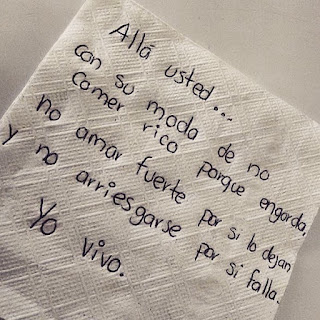 Allá usted...
con su moda de no
comer rico porque engorda,
no amar fuerte por si lo dejan
y no arriesgarse por si falla.
Yo vivo.